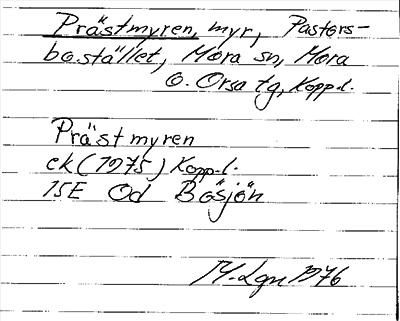 Prästmyren, myr, Pastors-
bostället, Mora sn, Mora
o. Orsa tg, Kopp.l.
Prästmyren
ek (1975) Kopp.l.
15E Od Bösjön
M. Lgn 1976